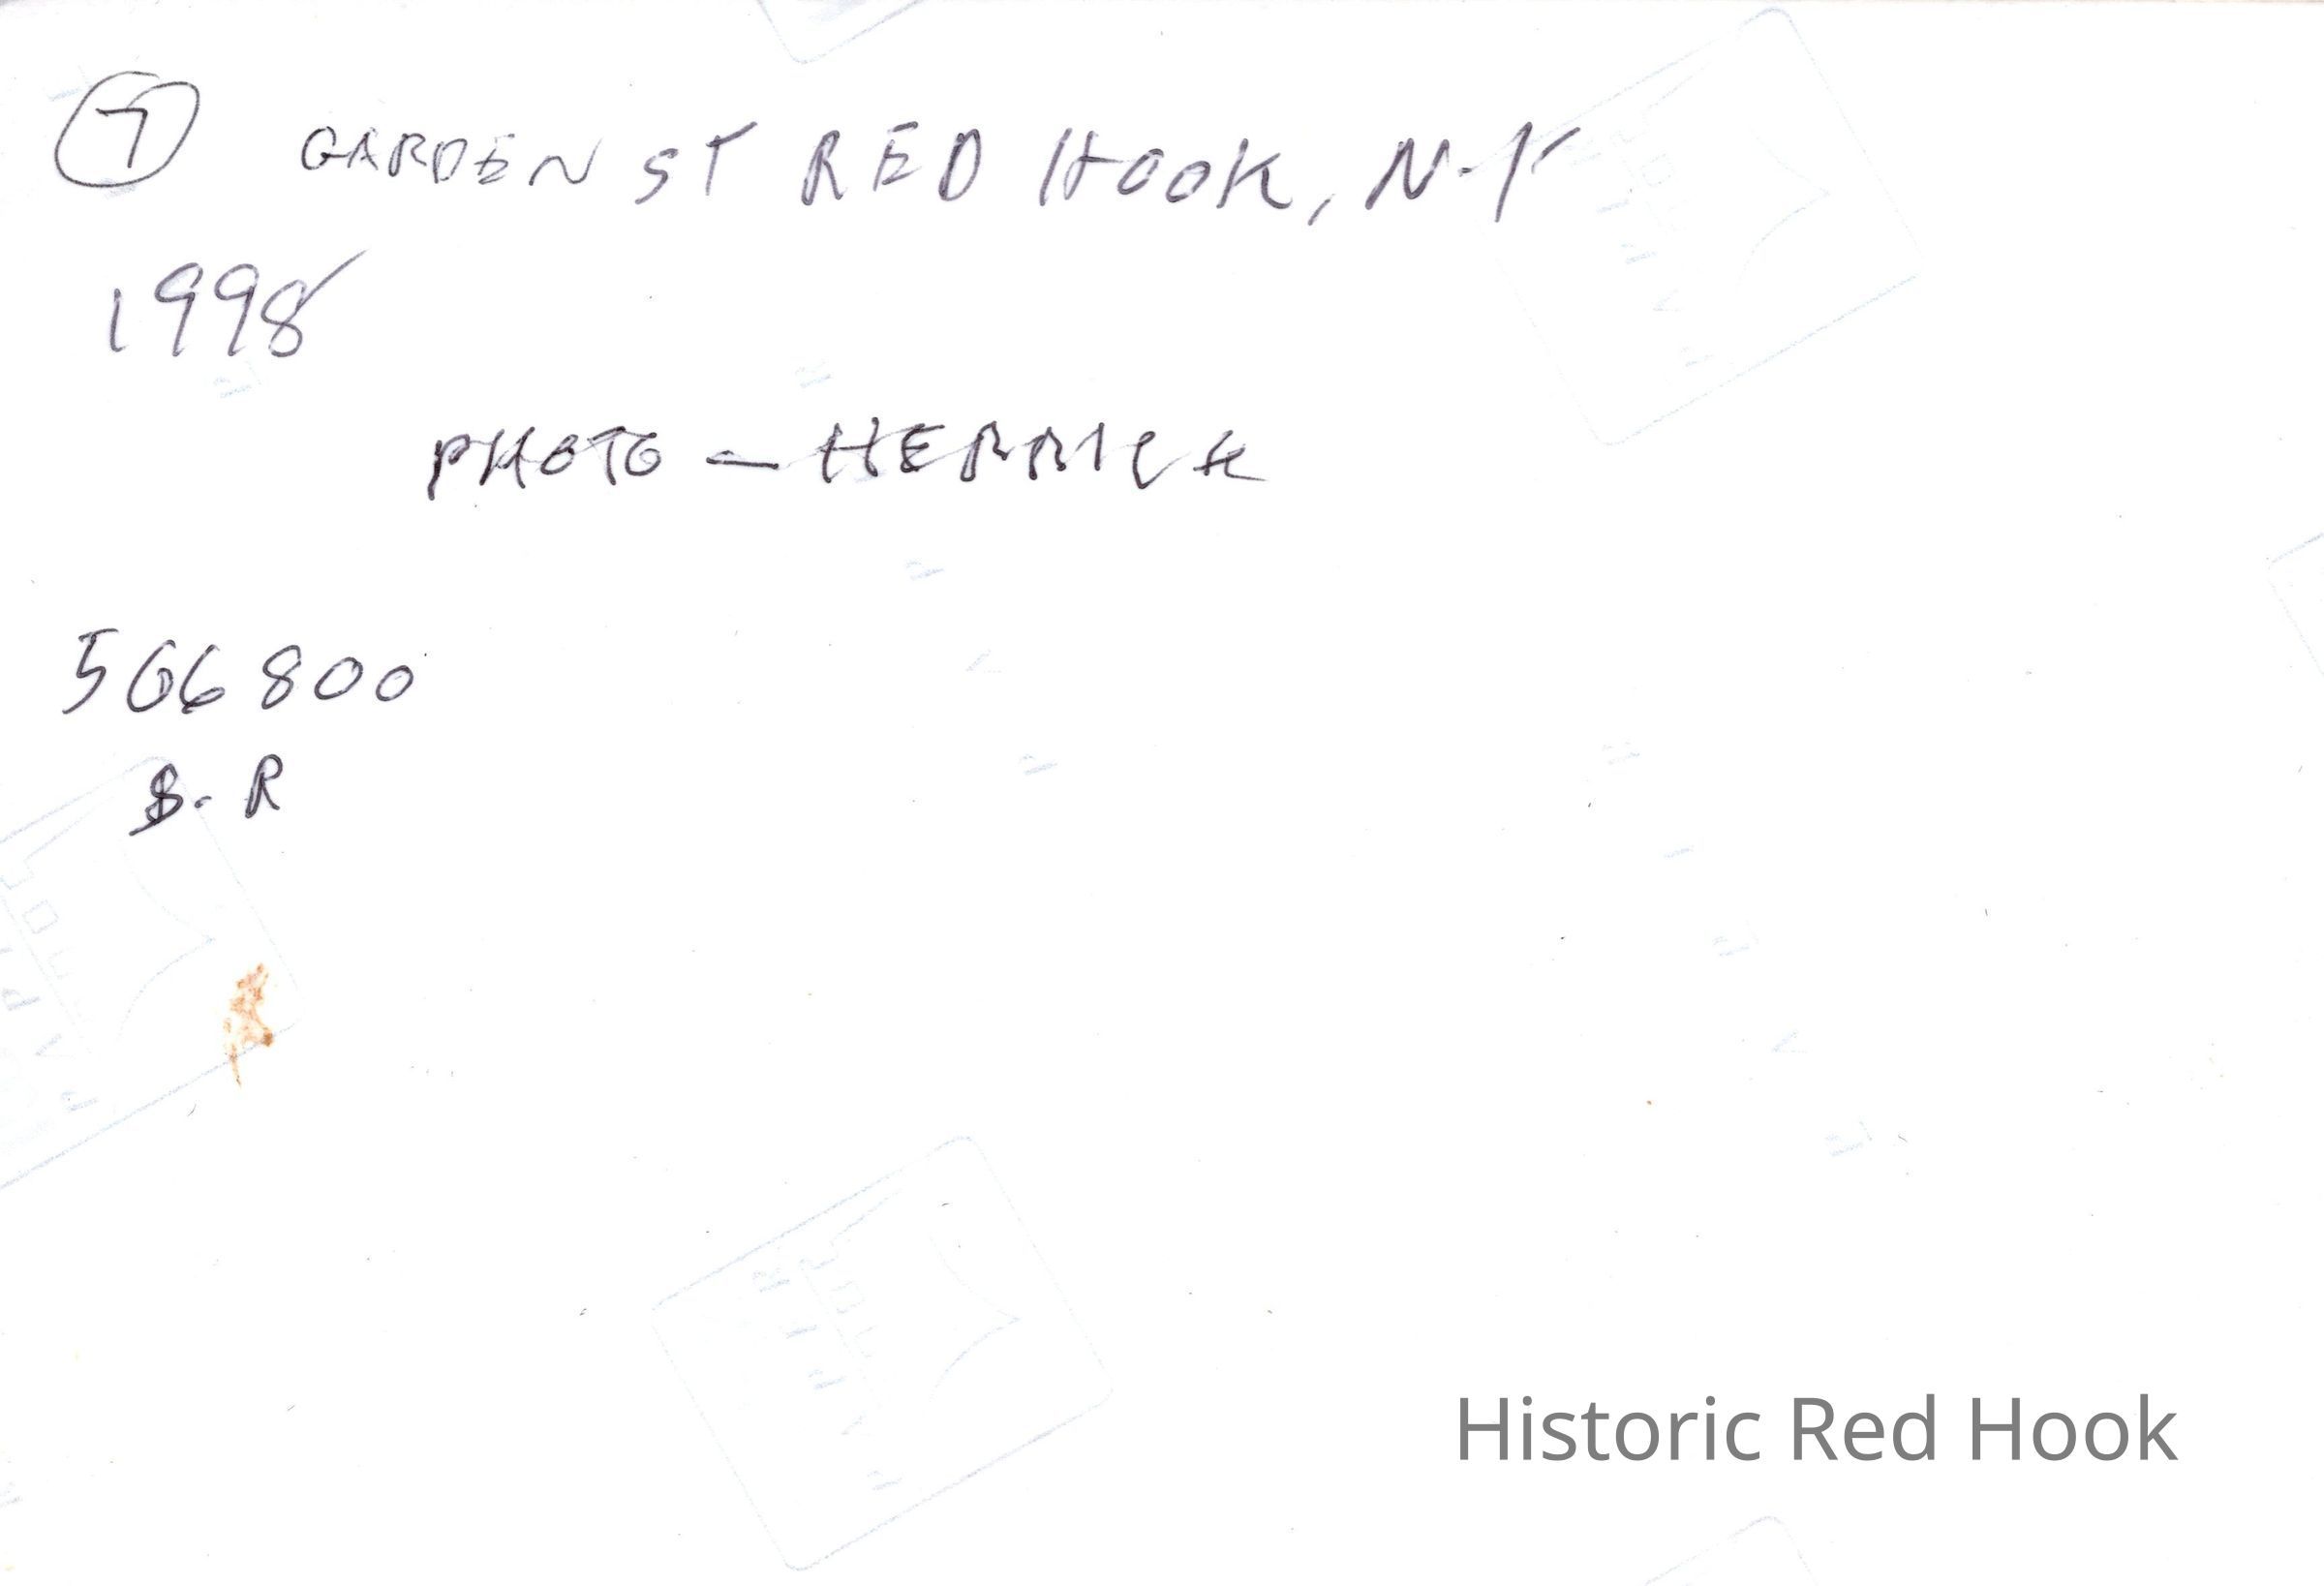 7 GARDEN ST RED HOOK, N.Y
1998
PHOTO - HERRICK
566800
B. R
Historic Red Hook